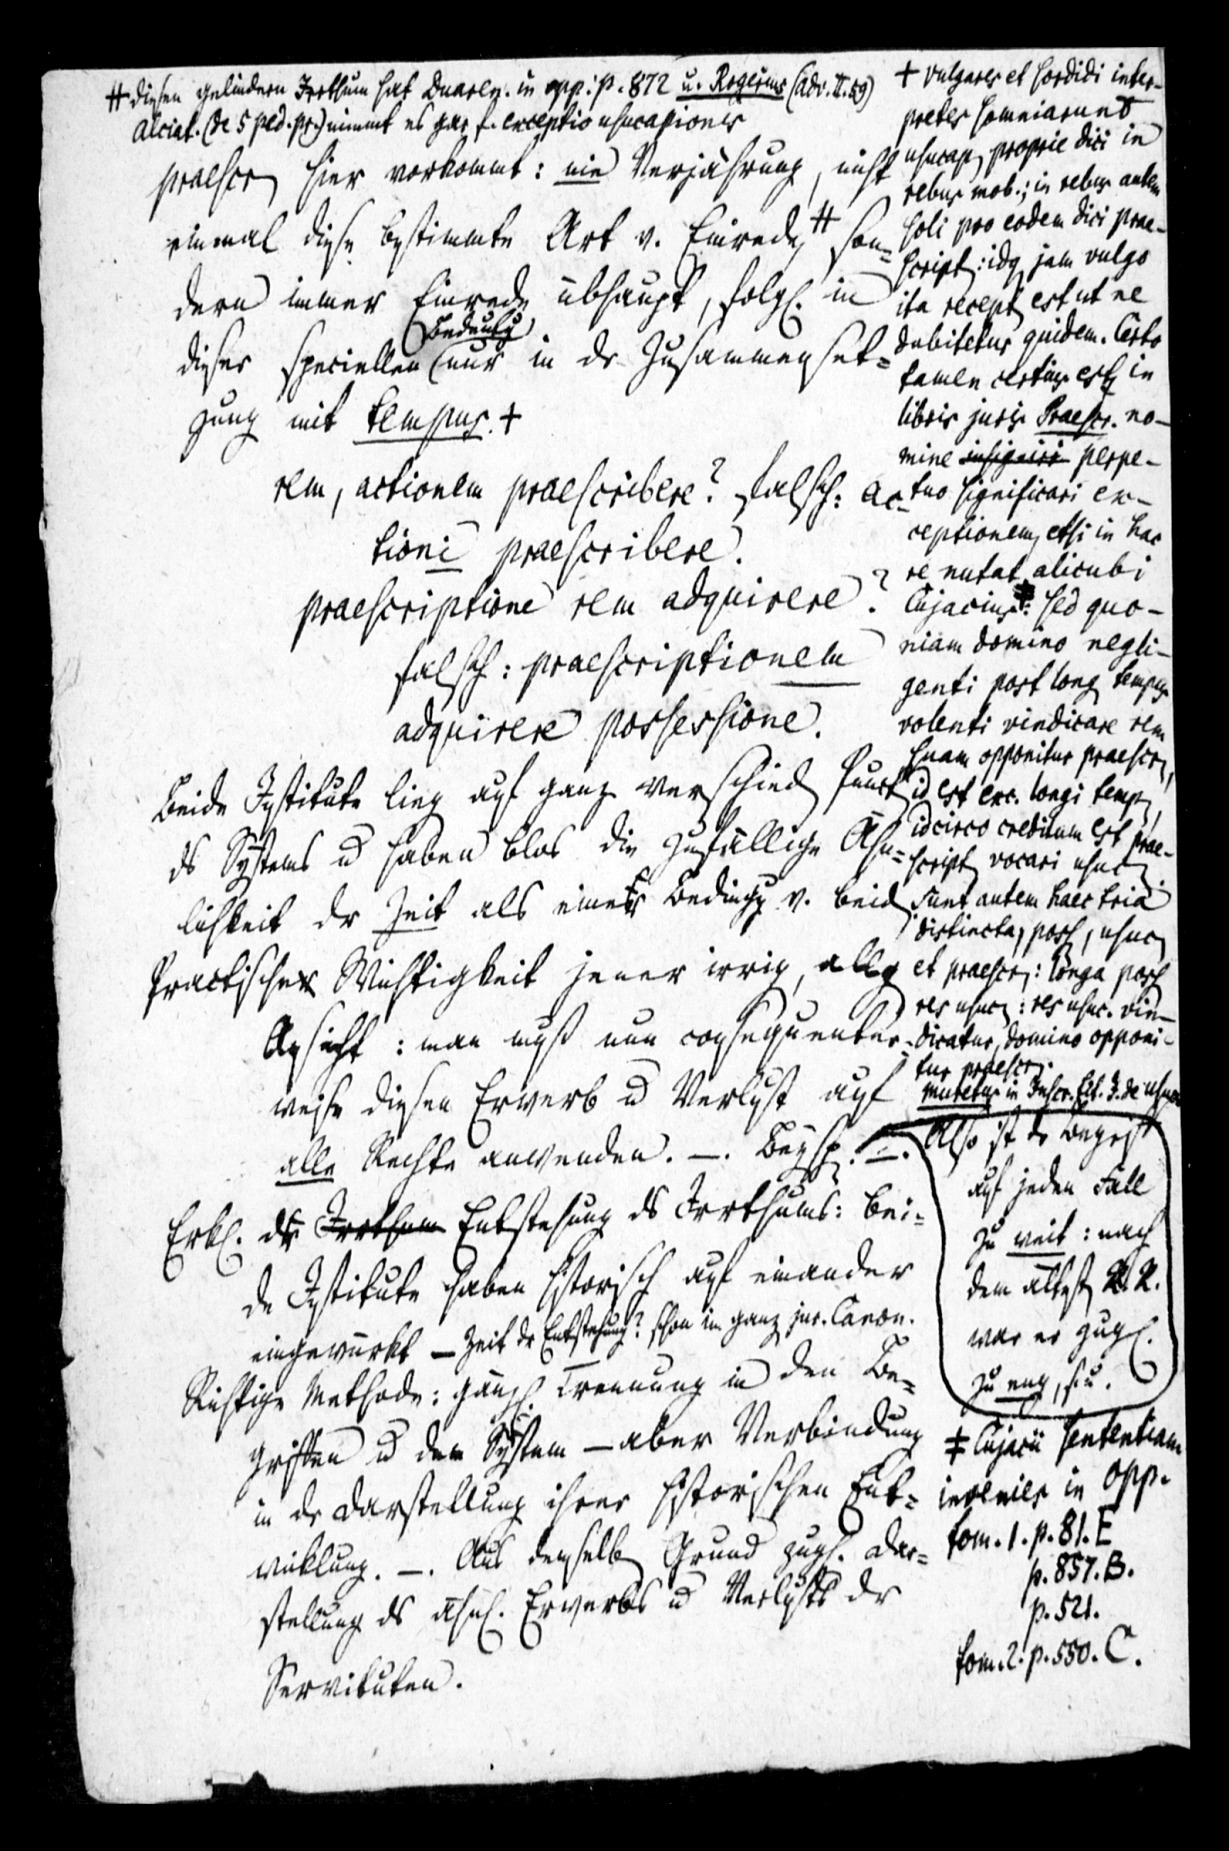 # diesen gelindern Irrthum hat Duaren. in opp. p. 872 u. Rogerius (Adv. II. 59)
Alciat. (de 5 ped. pr.) nimmt es gar f. exceptio usucapionis
praescr. hier vorkommt: nie Verjährung, nicht
einmal diese bestimmte Art v. Einrede, # son=
dern immer Einrede übhaupt, folgl. in
dieser speciellen Bedeutg nur in dr Zusammenset=
zung mit tempus. +
rem, actionem praescribere? falsch: ac-
tioni praescribere.
praescriptione rem adquirere?
falsch: praescriptionem
adquirere possessione.
Beide Institute lieg auf ganz verschied Punct
ds Systems u haben blos die zufällige Ähn=
lichkeit dr Zeit als einer Bedingg v. beid
Practische Wichtigkeit jener irrig, allg
Ansicht: man muß nun consequenter-
weise diesen Erwerb u Verlust auf
alle Rechte anwenden. —. Beysp. —.
Erkl. dr Irrthum Entstehung ds Irrthums: bei-
de Institute haben historisch auf einander
eingewürkt — Zeit dr Entstehung? schon im ganz jur. Canon.
Richtige Methode: gänzl. Trennung in den Be=
griffen u dem System — aber Verbindung
in dr Darstellung ihrer historischen Ent=
wicklung. —. Aus demselb Grund zugl. Dar=
stellung ds ähnl. Erwerbs u Verlusts dr
Servituten.
+ vulgares et sordidi inter-
pretes somniarunt
usucap. proprie dici in
rebus mob.; in rebus autem
soli pro eodem dici prae-
script.: idq jam vulgo
ita recept est ut ne
dubitetur quidem. Certo
tamen certius est in
libris juris Praescr. no-
mine insigniri perpe-
tuo significari ex-
ceptionem, etsi in hac
re nutat alicubi
Cujacius‡: sed quo-
niam domino negli-
genti post long tempus
volenti vindicare rem
suam opponitur praescr.,
id est exc. longi temp.,
idcirco creditum est prae-
script vocari usuc.
Sunt autem haec tria
distincta, poss., usuc.
et praescr.: longa poss
res usuc.: res usuc. vin-
dicatur, domino opponi-
tur praescr.
Muretus in Inscr. tit. J. de usucap
Also ist dr Begriff
auf jeden Fall
zu weit: nach
dem ältest R. R.
war er zugl.
zu eng, s. u.
‡ Cujacii sententiam
invenies in Opp.
tom. 1. p. 81. E
p. 857. B.
p. 521.
tom. 2. p. 550. C.